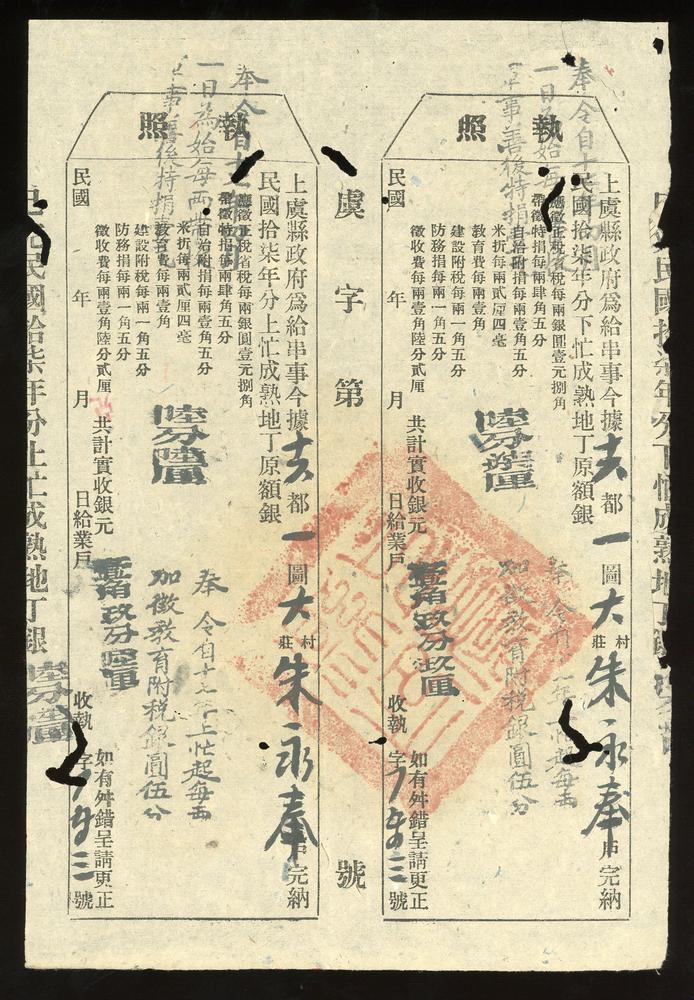 執照
上虞縣政府爲給串事今據 去 都 一 圖 大 村莊 朱永奉 戶完納
民國拾柒年分下忙成熟地丁原額銀 陸分
應徵正稅省稅每兩銀圓壹元捌角
帶徵特捐每兩肆角五分
自治附捐每兩壹角五分
米折每兩貳厘四毫
教育費每兩壹角
建設附稅每兩一角五分
防務捐每兩一角五分
徵收費每兩壹角陸分貳厘
共計實收銀元 壹角玖分玖厘
如有舛錯呈請更正
民國 年 月 日給業戶 收執 字 號
奉令自十
一日為始每
軍事善後特捐
加徵教育附稅銀圓伍分
虞字第 號
執照
上虞縣政府爲給串事今據 去 都 一 圖 大 村莊 朱永奉 戶完納
民國拾柒年分上忙成熟地丁原額銀 陸分陸厘
應徵正稅省稅每兩銀圓壹元捌角
帶徵特捐每兩肆角五分
自治附捐每兩壹角五分
米折每兩貳厘四毫
教育費每兩壹角
建設附稅每兩一角五分
防務捐每兩一角五分
徵收費每兩壹角陸分貳厘
共計實收銀元 壹角玖分陸厘
如有舛錯呈請更正
民國 年 月 日給業戶 收執 字 號
奉令自十
一日為始每兩
軍事善後特捐
奉 令自十七年上忙起每兩
加徵教育附稅銀圓伍分
民國拾柒年份上忙成熟地丁銀 陸分陸厘
民國拾柒年分下忙成熟地丁銀